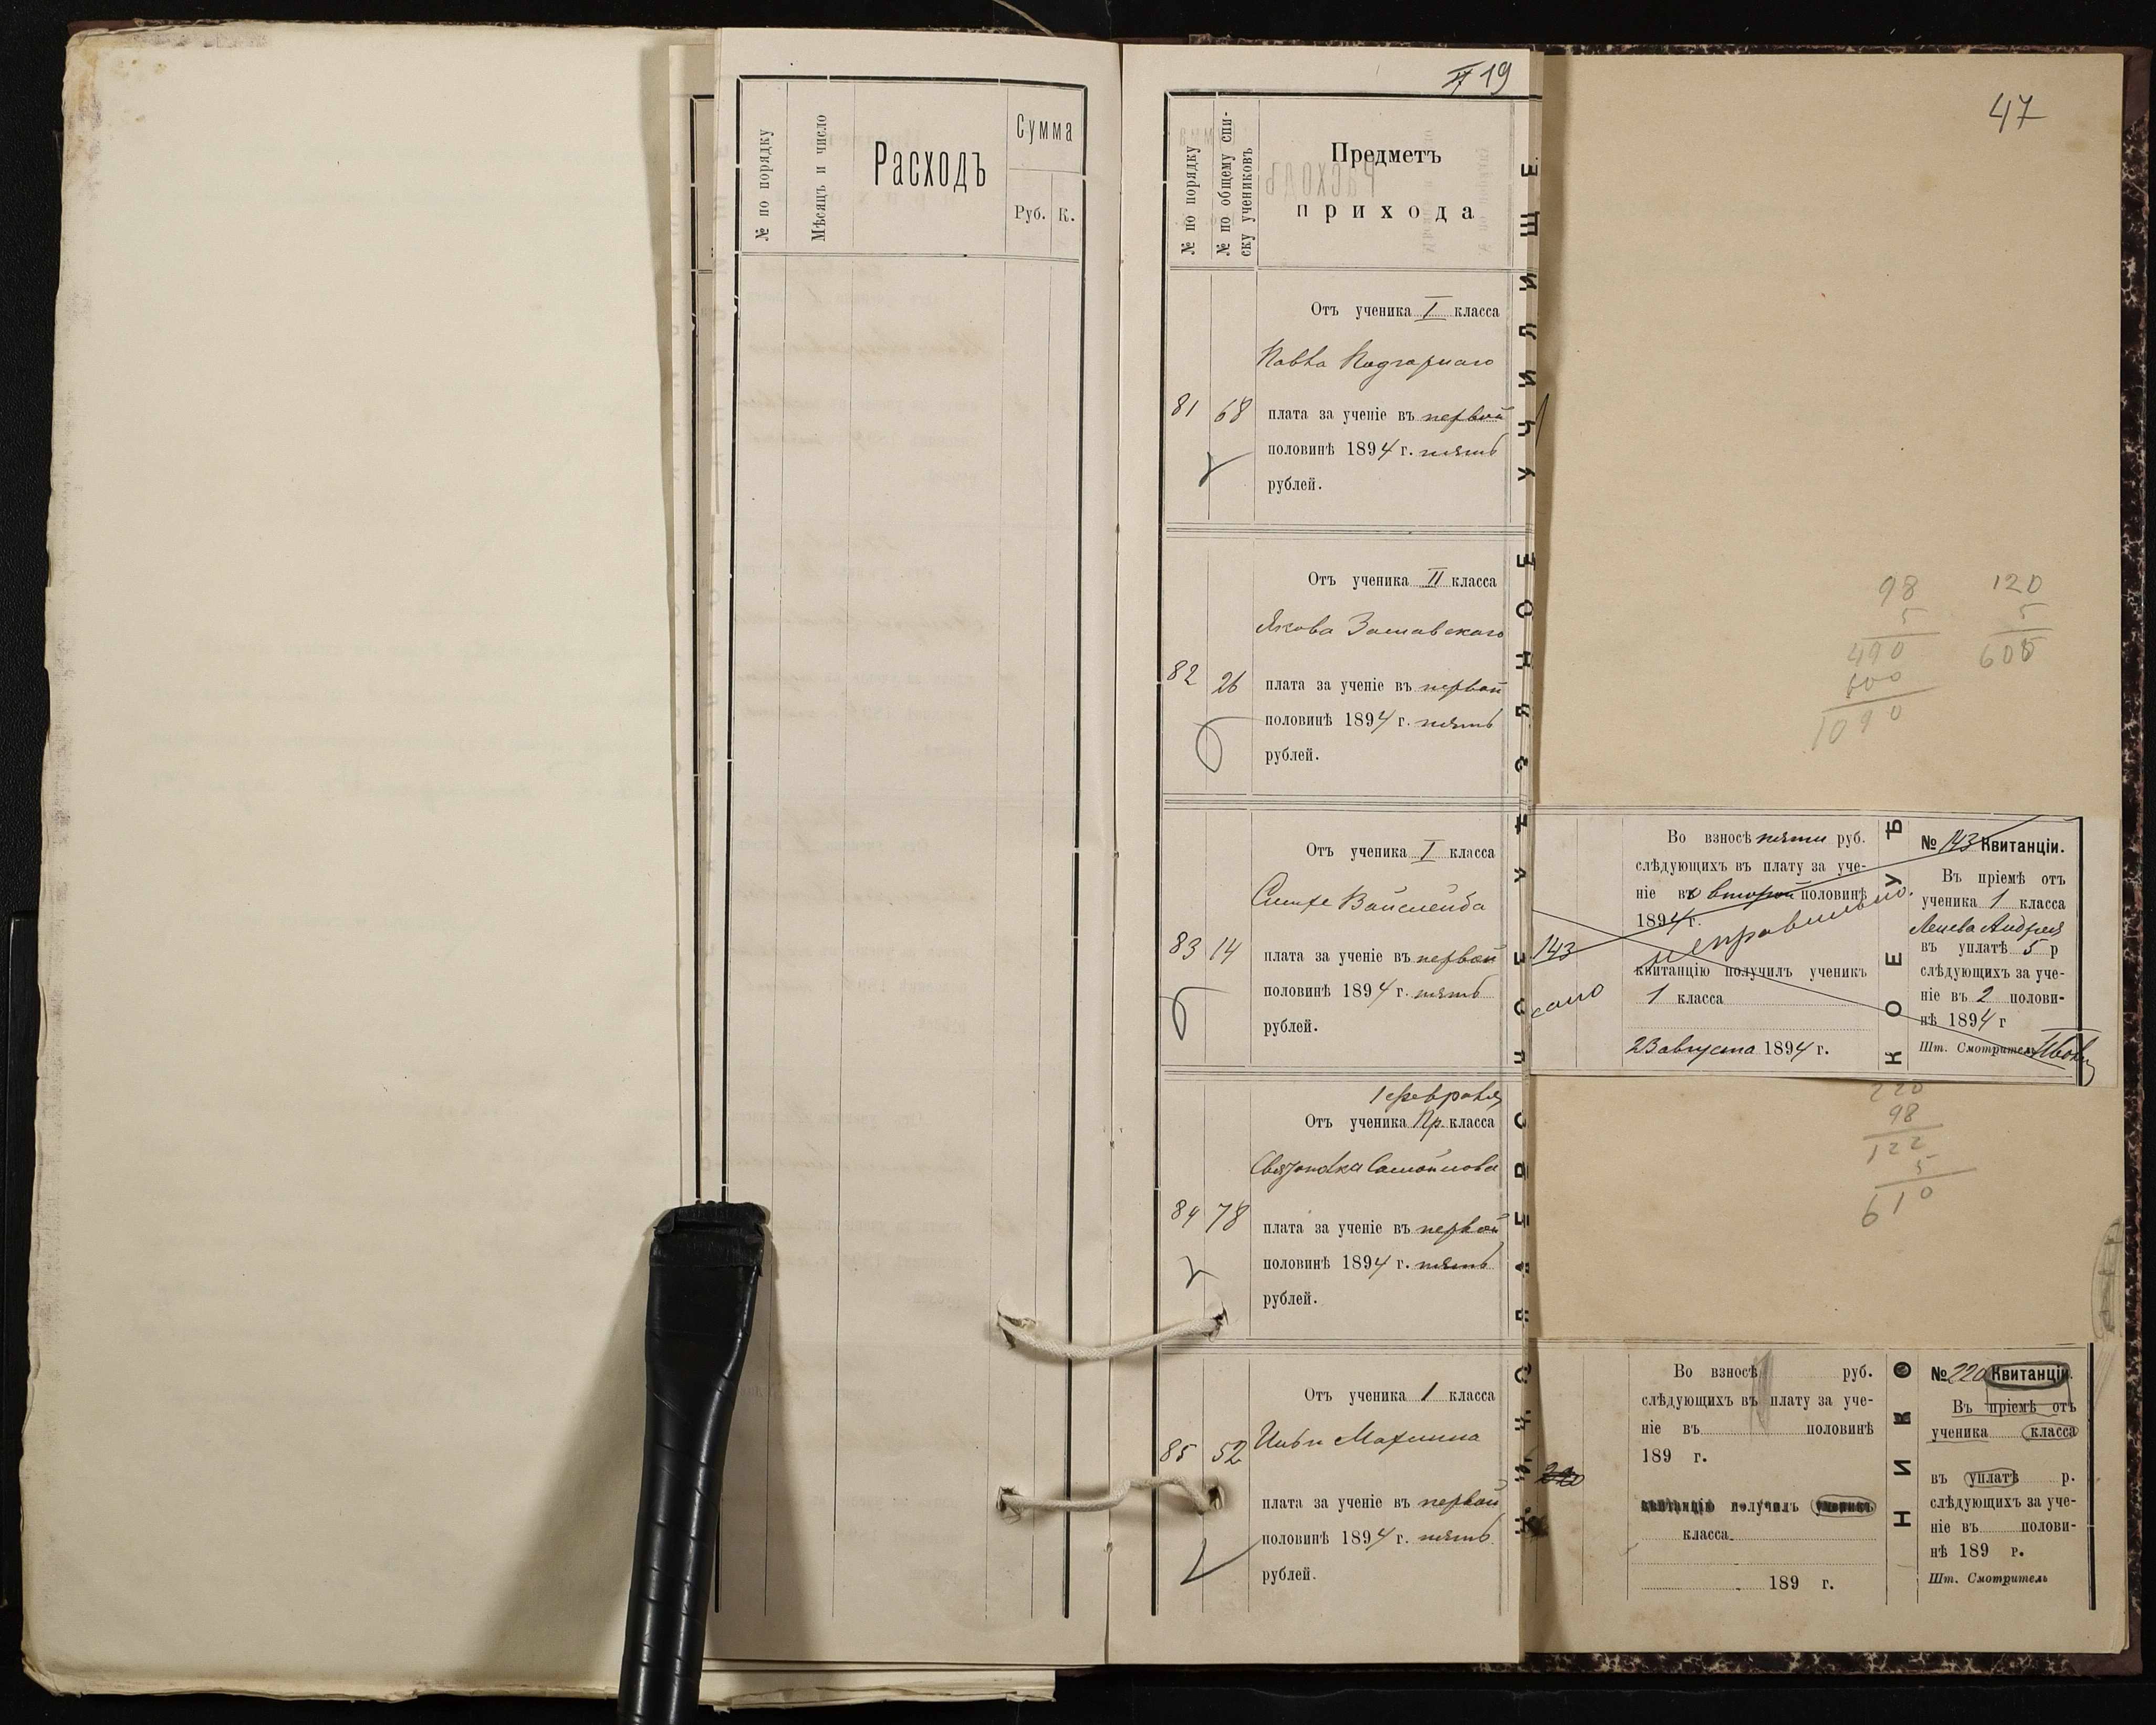 № по порядку
Мѣсяцъ и число
Расходъ
Сумма
Руб. К.
19
№ по порядку
№ по общему спи-
ску учениковъ
Предметъ
прихода
Отъ ученика I класса
Павла Подгорнаго
81 68 плата за ученіе въ первой
половинѣ 1894 г. пять
рублей.
Отъ ученика II класса
Якова Заславскаго
82 26 плата за ученіе въ первой
половинѣ 1894 г. пять
рублей.
Отъ ученика I класса
83 14 плата за ученіе въ первой
половинѣ 1894 г. пять
рублей.
1 февраля
Отъ ученика Пр. класса
Самойлова
84 78 плата за ученіе въ первой
половинѣ 1894 г. пять
рублей.
Отъ ученика 1 класса
85 52
плата за ученіе въ первой
половинѣ 1894 г. пять
рублей.
УЧИЛИЩЕ.
47
98
5
490
600
1090
120
5
600
143
Во взносѣ пяти руб.
слѣдующихъ въ плату за уче-
ніе въ второй половинѣ
1894 г.
неправильно.
квитанцію получилъ ученикъ
1 класса
23 августа 1894 г.
КОЕ УѢ
№ 143 Квитанціи.
Въ пріемѣ отъ
ученика 1 класса
Андрея
въ уплатѣ 5 р
слѣдующихъ за уче-
ніе въ 2 полови-
нѣ 1894 г
Шт. Смотритель
220
98
122
5
610
220
Во взносѣ руб.
слѣдующихъ въ плату за уче-
ніе въ половинѣ
189 г.
квитанцію получилъ ученикъ
класса
189 г.
НИКО
№ 220 Квитанціи.
Въ пріемѣ отъ
ученика класса
въ уплатѣ р.
слѣдующихъ за уче-
ніе въ полови-
нѣ 189 г.
Шт. Смотритель